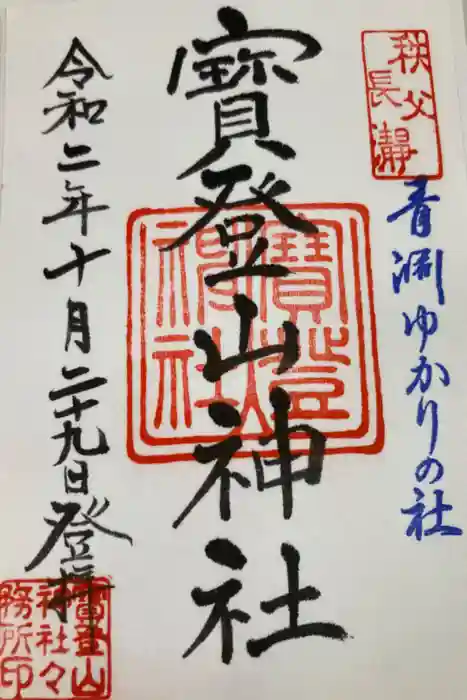 秩父
長瀞
青淵ゆかりの社
寳登山神社
寳登山神社
令和二年十月二十九日登拝
寳登山
神社々
務所印